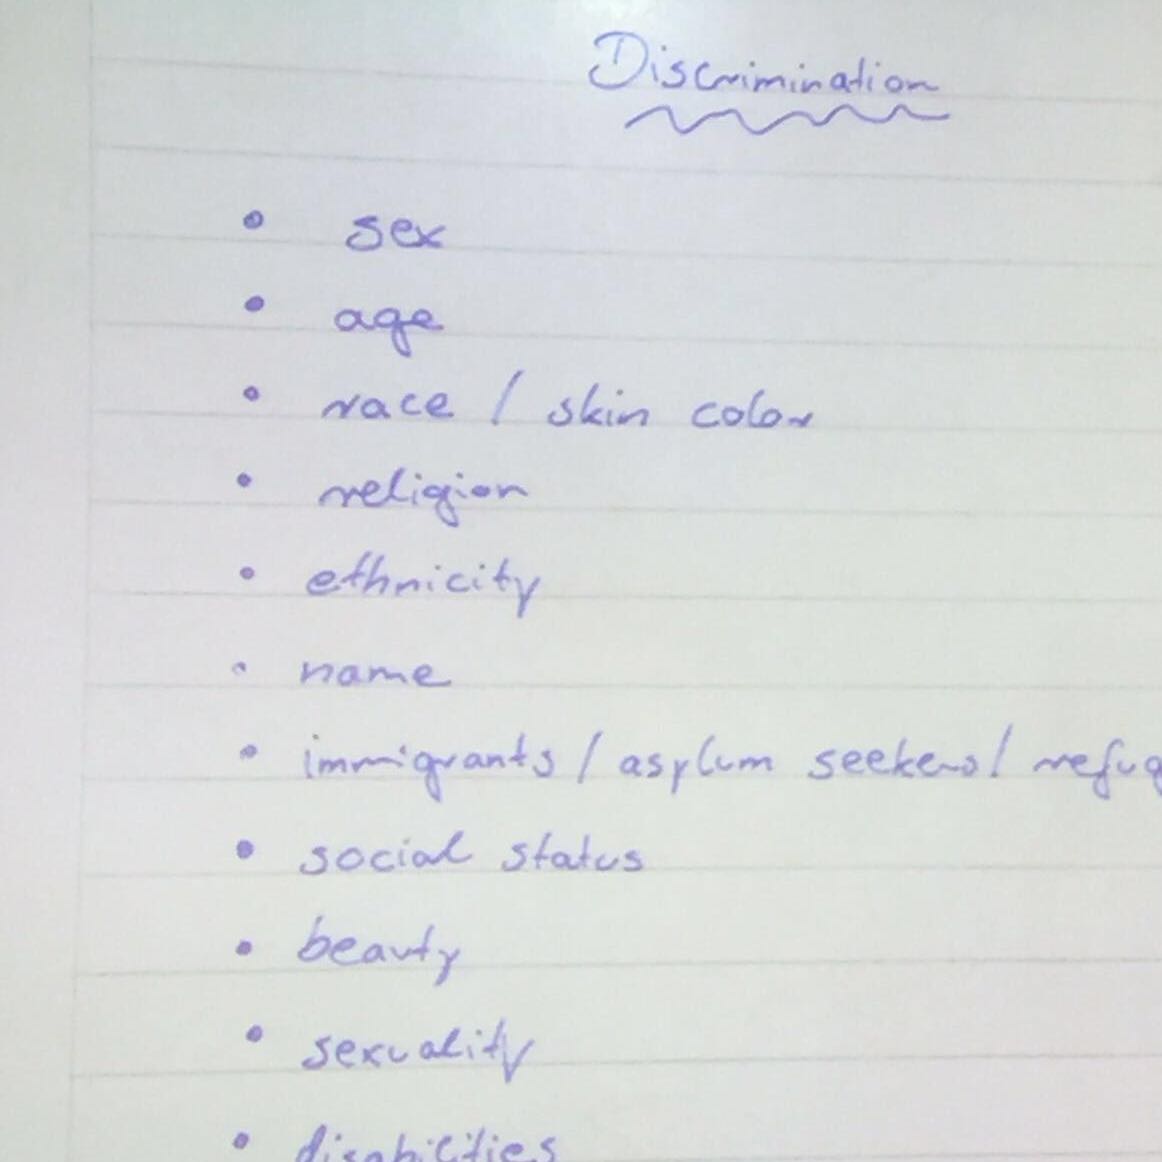 Discrimination
• sex
• age
• race / skin color
• religion
• ethnicity
• name
• immigrants / asylum seekers / refug
• social status
• beauty
• sexuality
• disabilities